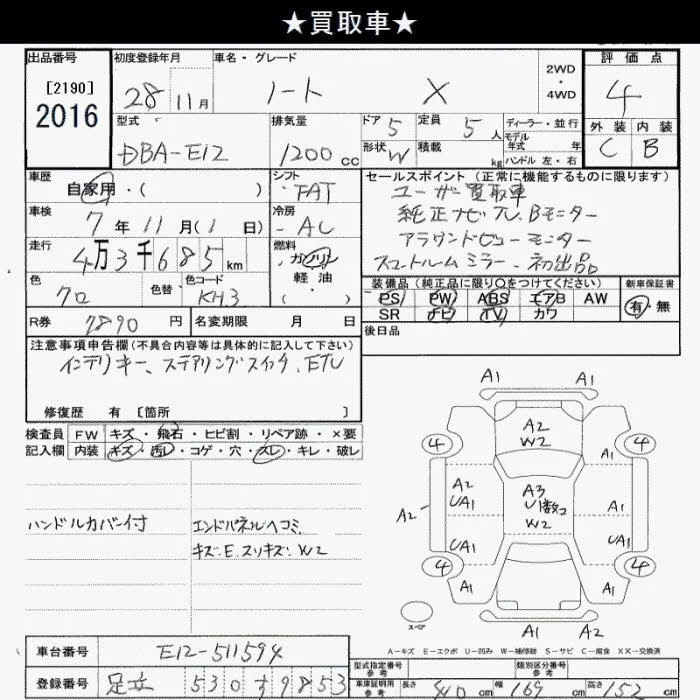 ★買取車★
出品番号
[2190]
2016
初度登録年月
28 11月
車名・グレード
ノート X
2WD
・
4WD
評価点
4
型式
DBA-E12
排気量
1200cc
ドア 5
定員 5人
ディーラー・並行
モデル
年式 年
ハンドル 左・右
形状 W
積載 kg
外装 内装
C B
車歴
自家用・( )
シフト
FAT
セールスポイント(正常に機能するものに限ります)
ユーザー買取車
純正ナビTV. Bモニター
アラウンドビューモニター
スマートルームミラー. 初出品
車検
7年11月(1日)
冷房
AC
走行
4万3千685km
燃料
ガソリン
軽・油
( )
色
色替
色コード
KH3
装備品(純正品に限り○をつけてください)
PS PW ABS エアB AW
SR ナビ TV カワ
新車保証書
有・無
R券 7890円
名変期限 月 日
後日品
注意事項申告欄(不具合内容等は具体的に記入して下さい)
インテリキー、ステアリングスイッチ. ETC
修復歴 有 [箇所 ]
検査員
記入欄
FW キズ・飛石・ヒビ割・リペア跡・×要
内装 キズ・汚レ・コゲ・穴・スレ・キレ・破レ
ハンドルカバー付
エンドパネルヘコミ
キズ・E. スリキズ・W2
A1 A1
4 A2 W2 4
A2 A1
A2 UA1 A3 U1数コ W2 A1
UA1 A1
4 4
A1 A1
A1 A2
スペア
A-キズ E-エクボ U-凹み W-補修跡 S-サビ C-腐食 XX-交換済
車台番号 E12-511594
登録番号 足立 530 す 9853
型式指定番号
参考
類別区分番号
参考
車庫証明用
参考
長さ 410cm 幅 169cm 高さ 152cm